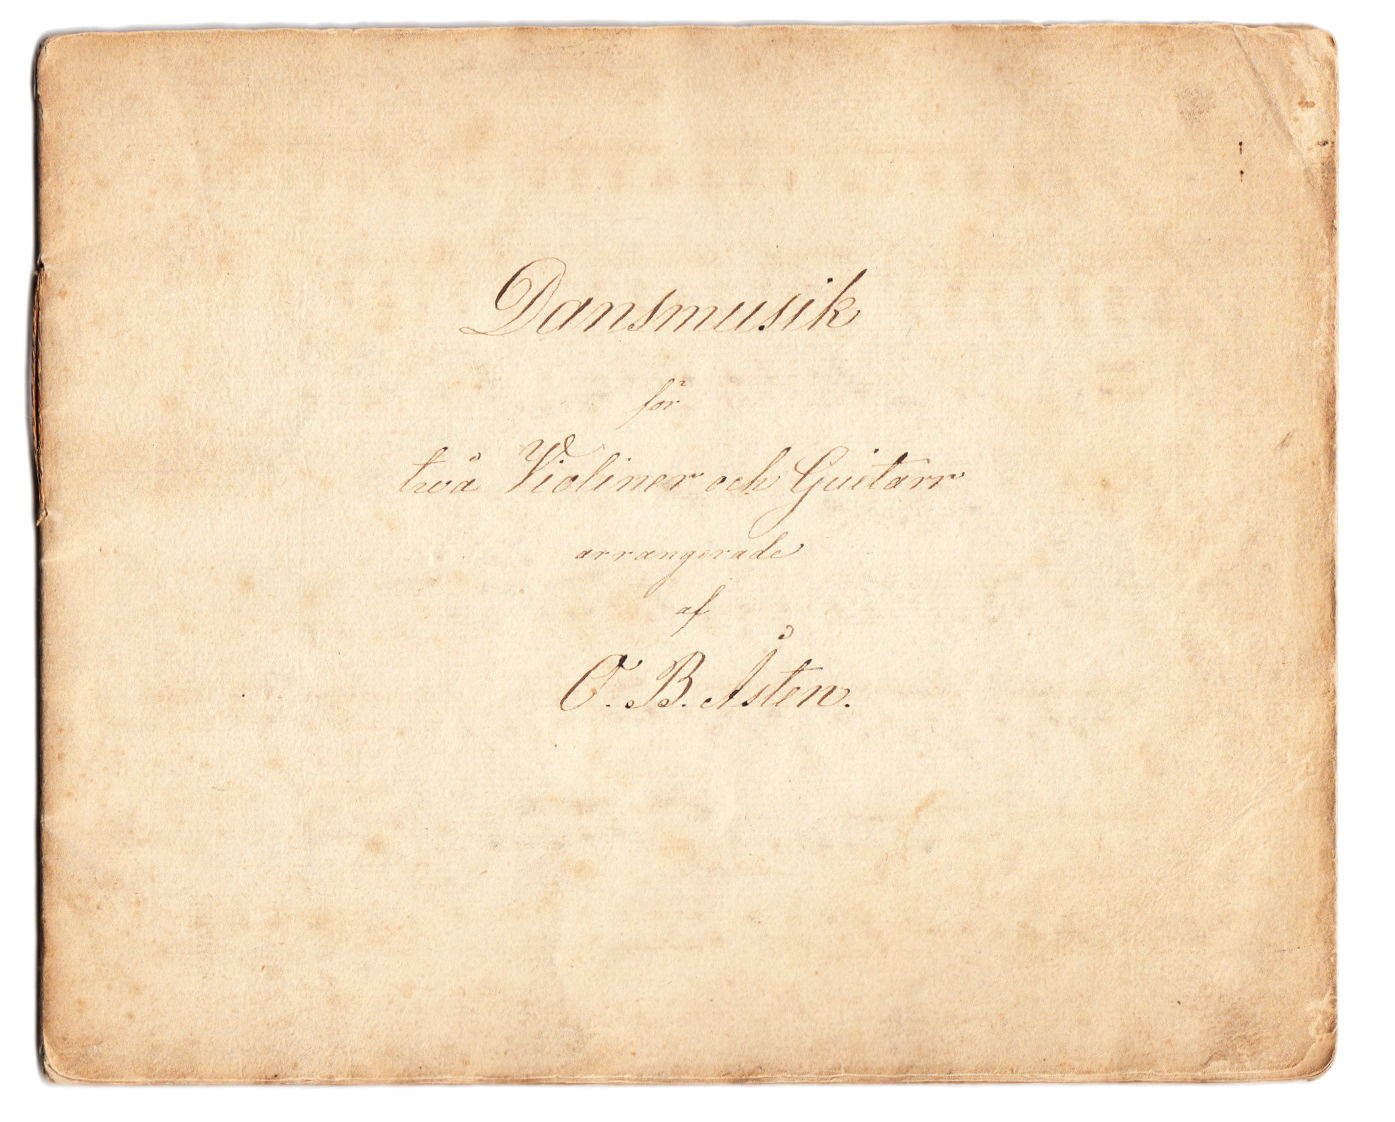 Dansmusik
för
twå Violiner och Guitarr
arrangerade
af
O. B. Åsten.